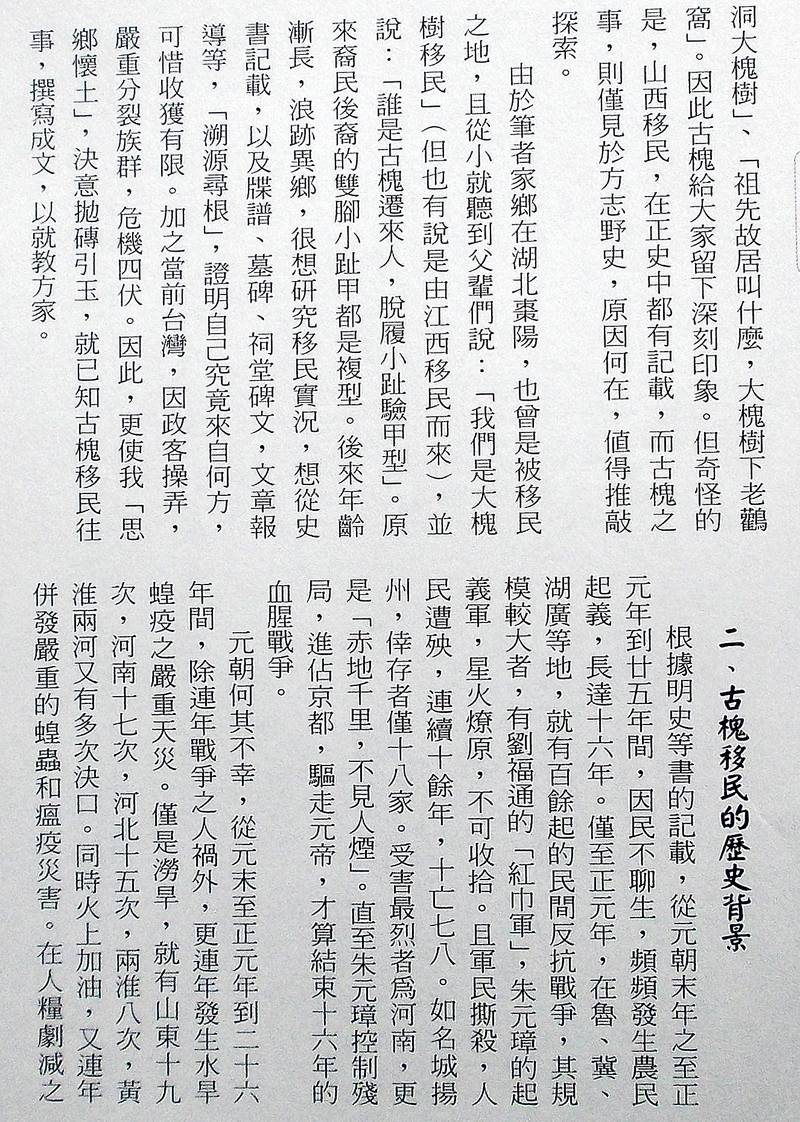 洞大槐樹」、「祖先故居叫什麼，大槐樹下老鸛
窩」。因此古槐給大家留下深刻印象。但奇怪的
是，山西移民，在正史中都有記載，而古槐之
事，則僅見於方志野史，原因何在，值得推敲
探索。
由於筆者家鄉在湖北棗陽，也曾是被移民
之地，且從小就聽到父輩們說：「我們是大槐
樹移民」（但也有說是由江西移民而來），並
說：「誰是古槐遷來人，脫履小趾驗甲型」。原
來裔民後裔的雙腳小趾甲都是複型。後來年齡
漸長，浪跡異鄉，很想研究移民實況，想從史
書記載，以及牒譜、墓碑、祠堂碑文，文章報
導等，「溯源尋根」，證明自己究竟來自何方，
可惜收獲有限。加之當前台灣，因政客操弄，
嚴重分裂族群，危機四伏。因此，更使我「思
鄉懷土」，決意拋磚引玉，就已知古槐移民往
事，撰寫成文，以就教方家。
二、古槐移民的歷史背景
根據明史等書的記載，從元朝末年之至正
元年到廿五年間，因民不聊生，頻頻發生農民
起義，長達十六年。僅至正元年，在魯、冀、
湖廣等地，就有百餘起的民間反抗戰爭，其規
模較大者，有劉福通的「紅巾軍」，朱元璋的起
義軍，星火燎原，不可收拾。且軍民撕殺，人
民遭殃，連續十餘年，十亡七八。如名城揚
州，倖存者僅十八家。受害最烈者為河南，更
是「赤地千里，不見人煙」。直至朱元璋控制殘
局，進佔京都，驅走元帝，才算結束十六年的
血腥戰爭。
元朝何其不幸，從元末至正元年到二十六
年間，除連年戰爭之人禍外，更連年發生水旱
蝗疫之嚴重天災。僅是澇旱，就有山東十九
次，河南十七次，河北十五次，兩淮八次，黃
淮兩河又有多次決口。同時火上加油，又連年
併發嚴重的蝗蟲和瘟疫災害。在人糧劇減之